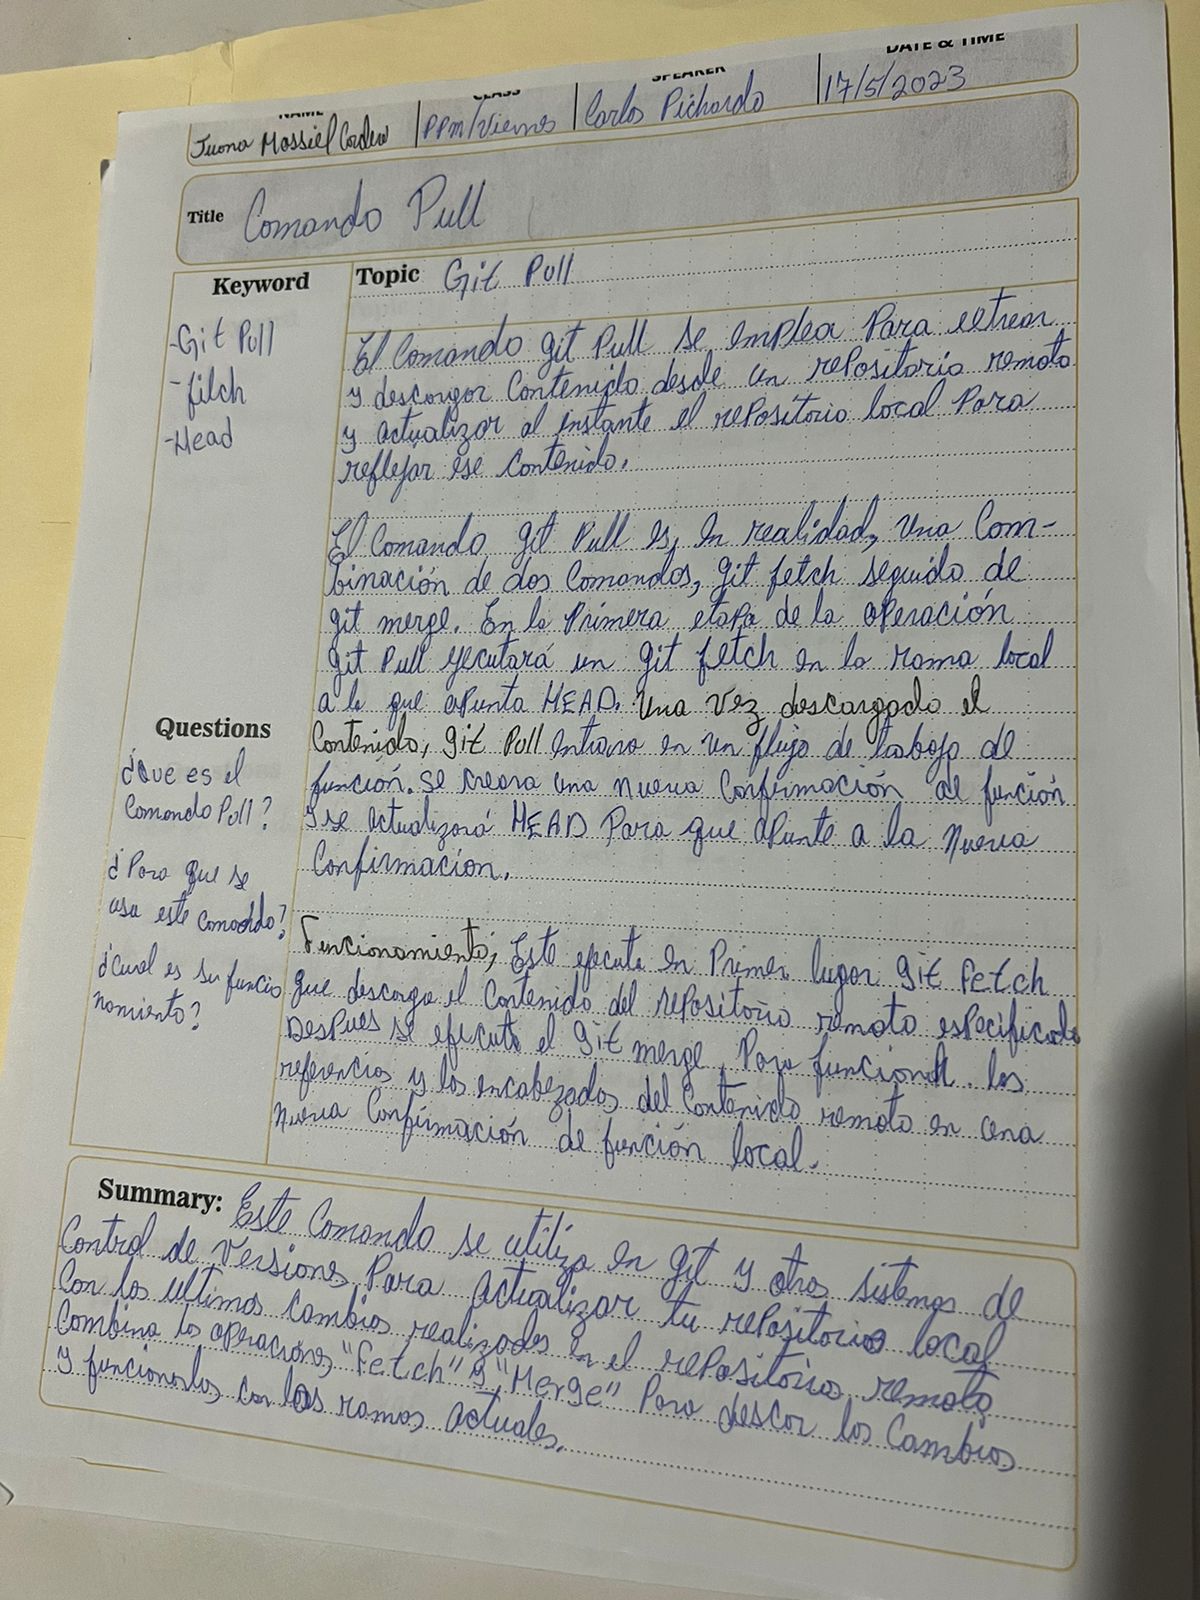 NAME
CLASS
SPEAKER
DATE & TIME
Juana Massiel Cordero
PPM/Viernes
Carlos Pichardo
17/5/2023
Title Comando Pull
Keyword
-Git Pull
-fitch
-Head
Questions
¿Que es el
Comando Pull?
¿Para que se
usa este comando?
¿Cual es su funcio
namiento?
Topic Git Pull
El Comando git Pull se emplea Para extraer
y descargar Contenido desde un repositorio remoto
y actualizar al instante el repositorio local Para
reflejar ese contenido.
El Comando git Pull es, en realidad, una Com-
binación de dos Comandos, git fetch seguido de
git merge. En la Primera etapa de la operación
git Pull ejecutará un git fetch en la rama local
a la que apunta HEAD. Una vez descargado el
Contenido, git Pull entrara en un flujo de trabajo de
función. Se creara una nueva Confirmación de función
y se actualizará HEAD Para que apunte a la nueva
Confirmacion.
Funcionamiento; Este ejecuta en Primer lugar git Fetch
que descarga el Contenido del repositorio remoto especificado
Despues se ejecuta el git merge Para funcionar las
referencias y los encabezados del Contenido remoto en una
nueva Confirmación de función local.
Summary: Este Comando se utiliza en git y otros sistemas de
Control de Versiones Para Actualizar tu repositorio local
Con los ultimos cambios realizados en el repositorio remoto
Combina las operaciones "Fetch" y "Merge" Para descar los Cambios
y funcionarlos con las ramas actuales.